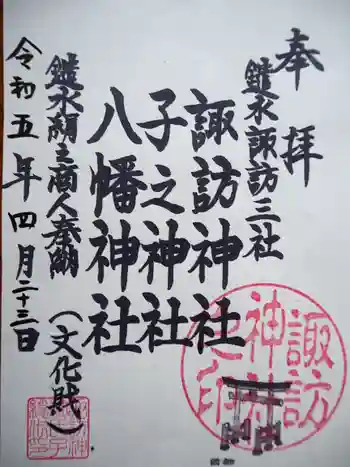 奉拝
鑓水諏訪三社
諏訪神社
子之神神社
八幡神社
鑓水絹之商人奉納（文化財）
令和五年四月二十三日
諏訪神社之印